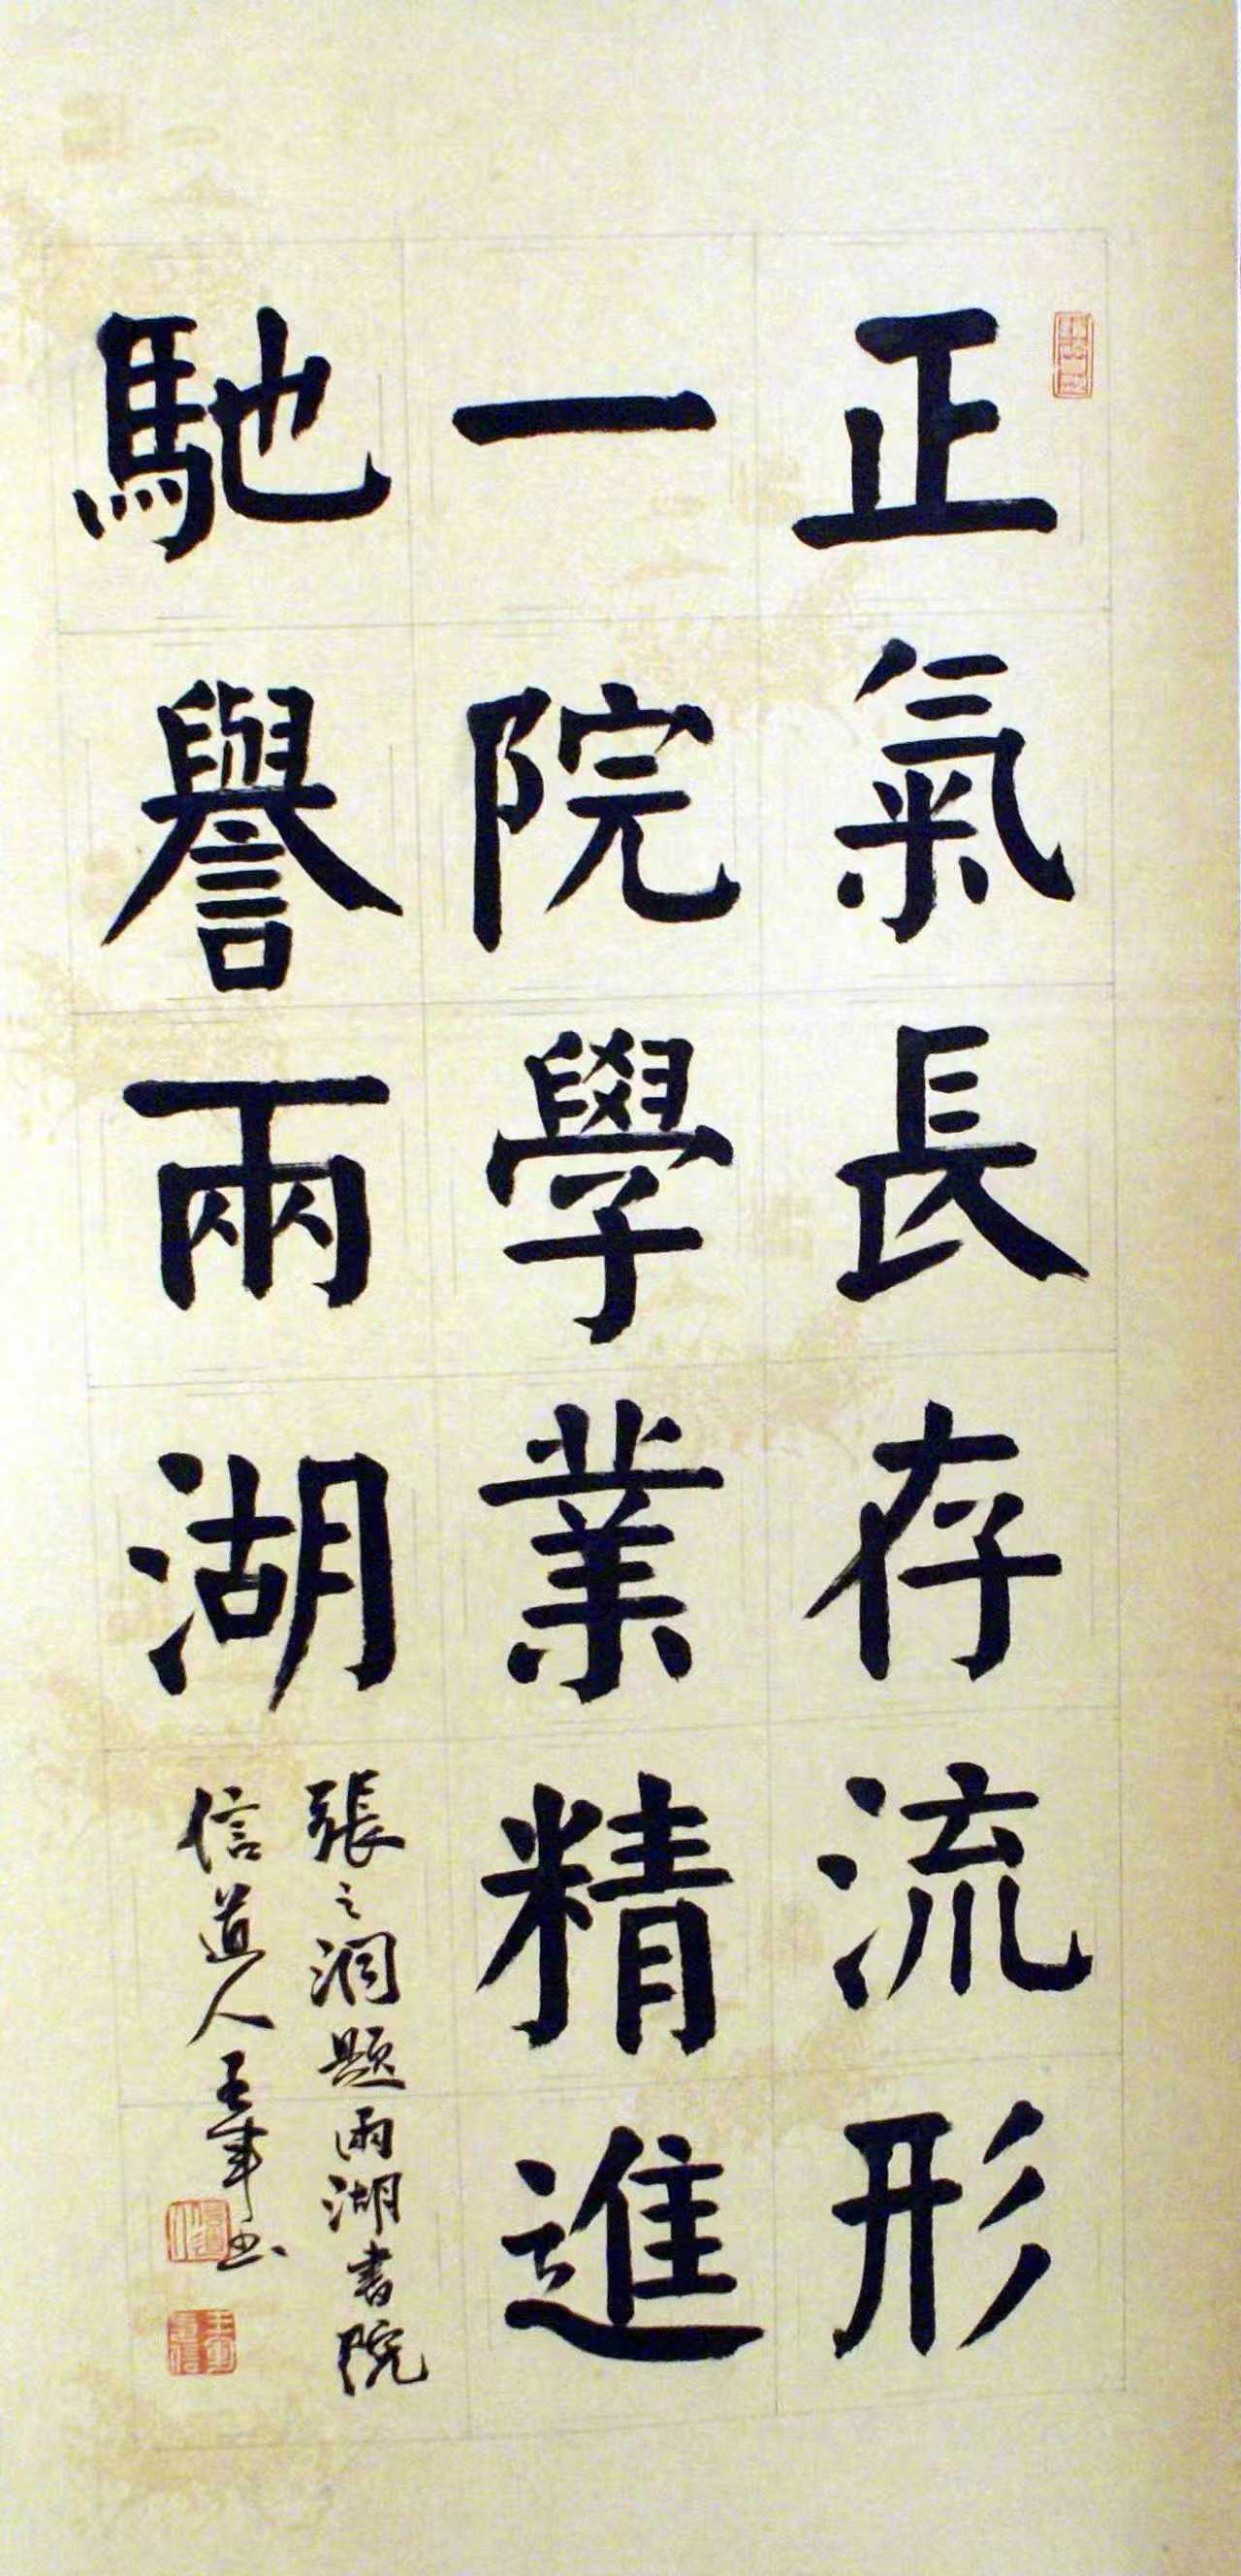 正氣長存流形
一院學業精進
馳譽兩湖
張之洞題兩湖書院
信道人王軍书